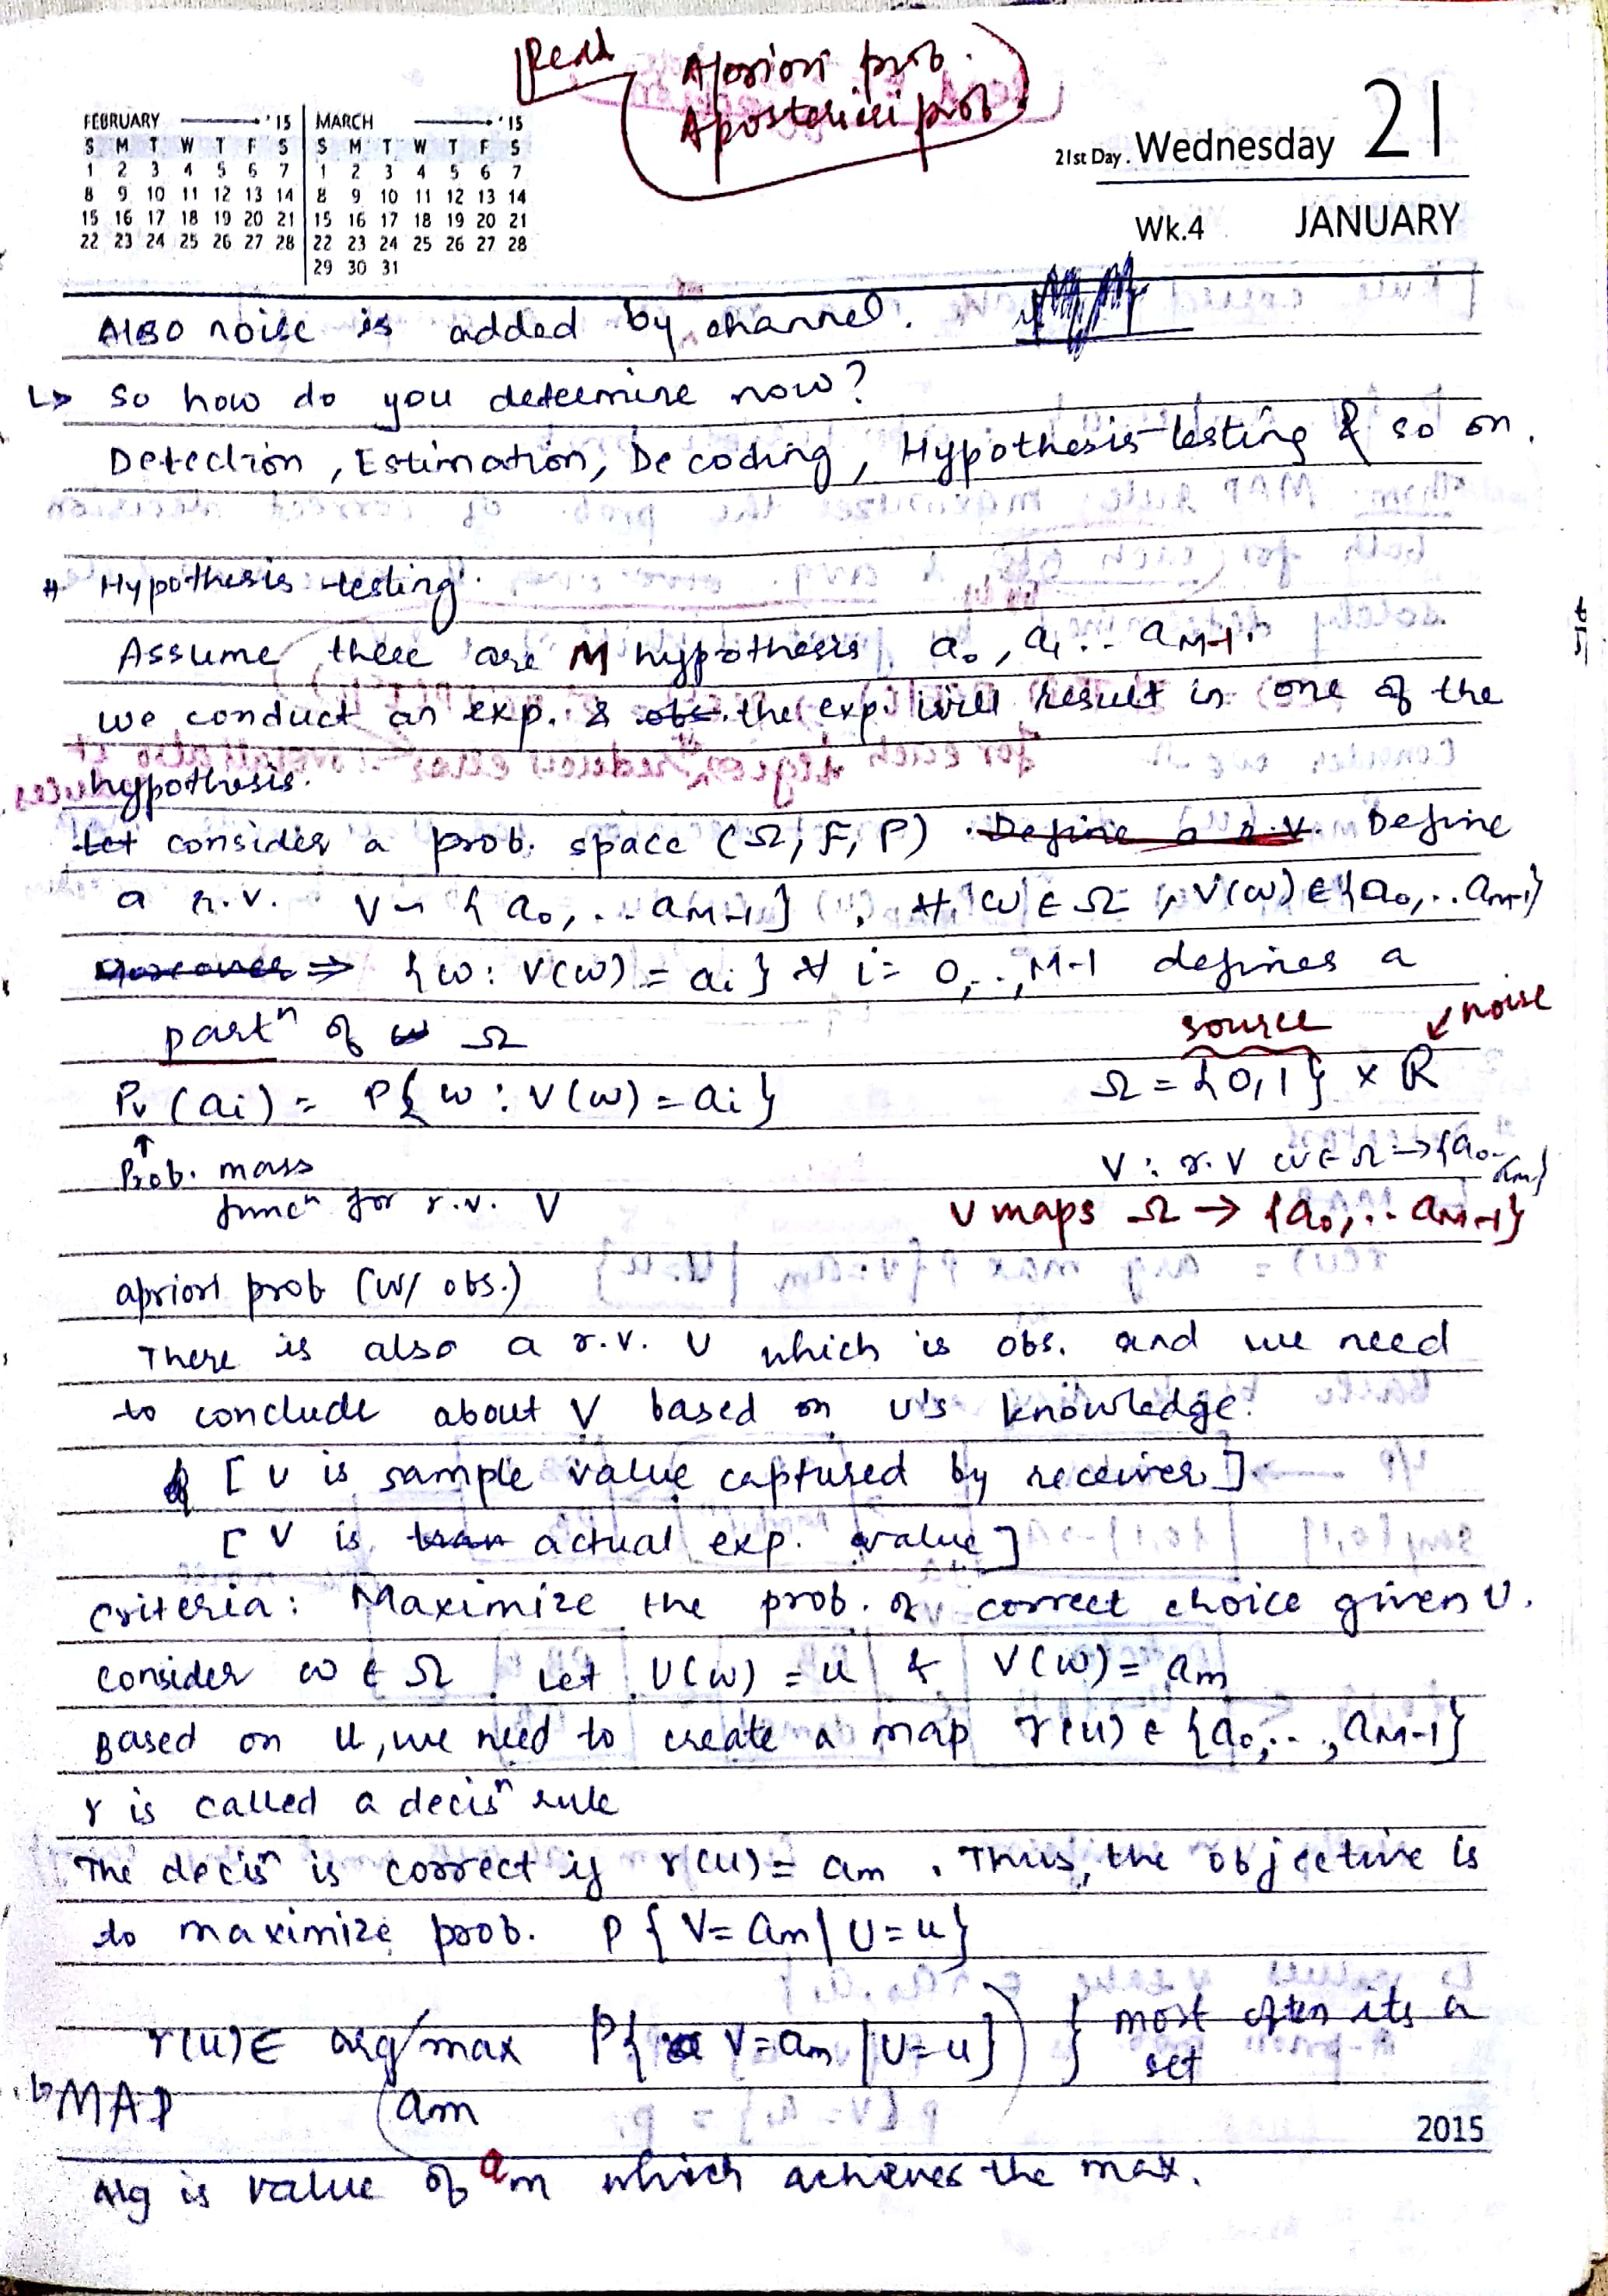 Read
Apriori prob.
Aposteriori prob
FEBRUARY '15
S M T W T F S
1 2 3 4 5 6 7
8 9 10 11 12 13 14
15 16 17 18 19 20 21
22 23 24 25 26 27 28
MARCH '15
S M T W T F S
1 2 3 4 5 6 7
8 9 10 11 12 13 14
15 16 17 18 19 20 21
22 23 24 25 26 27 28
29 30 31
21st Day. Wednesday 21
Wk.4 JANUARY
Also noise is added by channel.
↳ So how do you determine now?
Detection, Estimation, Decoding, Hypothesis testing & so on.
# Hypothesis testing.
Assume there are M hypothesis a₀, a₁ .. a_{M-1}.
we conduct an exp. & the exp. will result in one of the
hypothesis.
Let consider a prob. space (Ω, F, P). Define a r.v. Define
a r.v. V ~ { a₀, .. a_{M-1} } , ∀ ω ∈ Ω, V(ω) ∈ {a₀, .. a_{M-1}}
Moreover ⇒ {ω : V(ω) = aᵢ} ∀ i = 0, .., M-1 defines a
partⁿ of ω Ω
source
↙ noise
Ω = {0,1} × R
P_V (aᵢ) = P{ ω : V(ω) = aᵢ }
↑
Prob. mass
funcⁿ for r.v. V
V : r.v ω ∈ Ω → {a₀ .. a_m}
V maps Ω → {a₀, .. a_{M-1}}
apriori prob (w/ obs.)
There is also a r.v. U which is obs. and we need
to conclude about V based on U's knowledge.
[ U is sample value captured by receiver ]
[ V is tran actual exp. value ]
criteria: Maximize the prob. of correct choice given U.
consider ω ∈ Ω. Let U(ω) = u & V(ω) = a_m
Based on u, we need to create a map r(u) ∈ {a₀, .., a_{M-1}}
r is called a decisⁿ rule
The decisⁿ is correct if r(u) = a_m. Thus, the objective is
to maximize prob. P { V = a_m | U = u }
r(u) ∈ arg max P{ V = a_m | U = u } } most often its a
set
↳ MAP
a_m
2015
Arg is value of a_m which achieves the max.